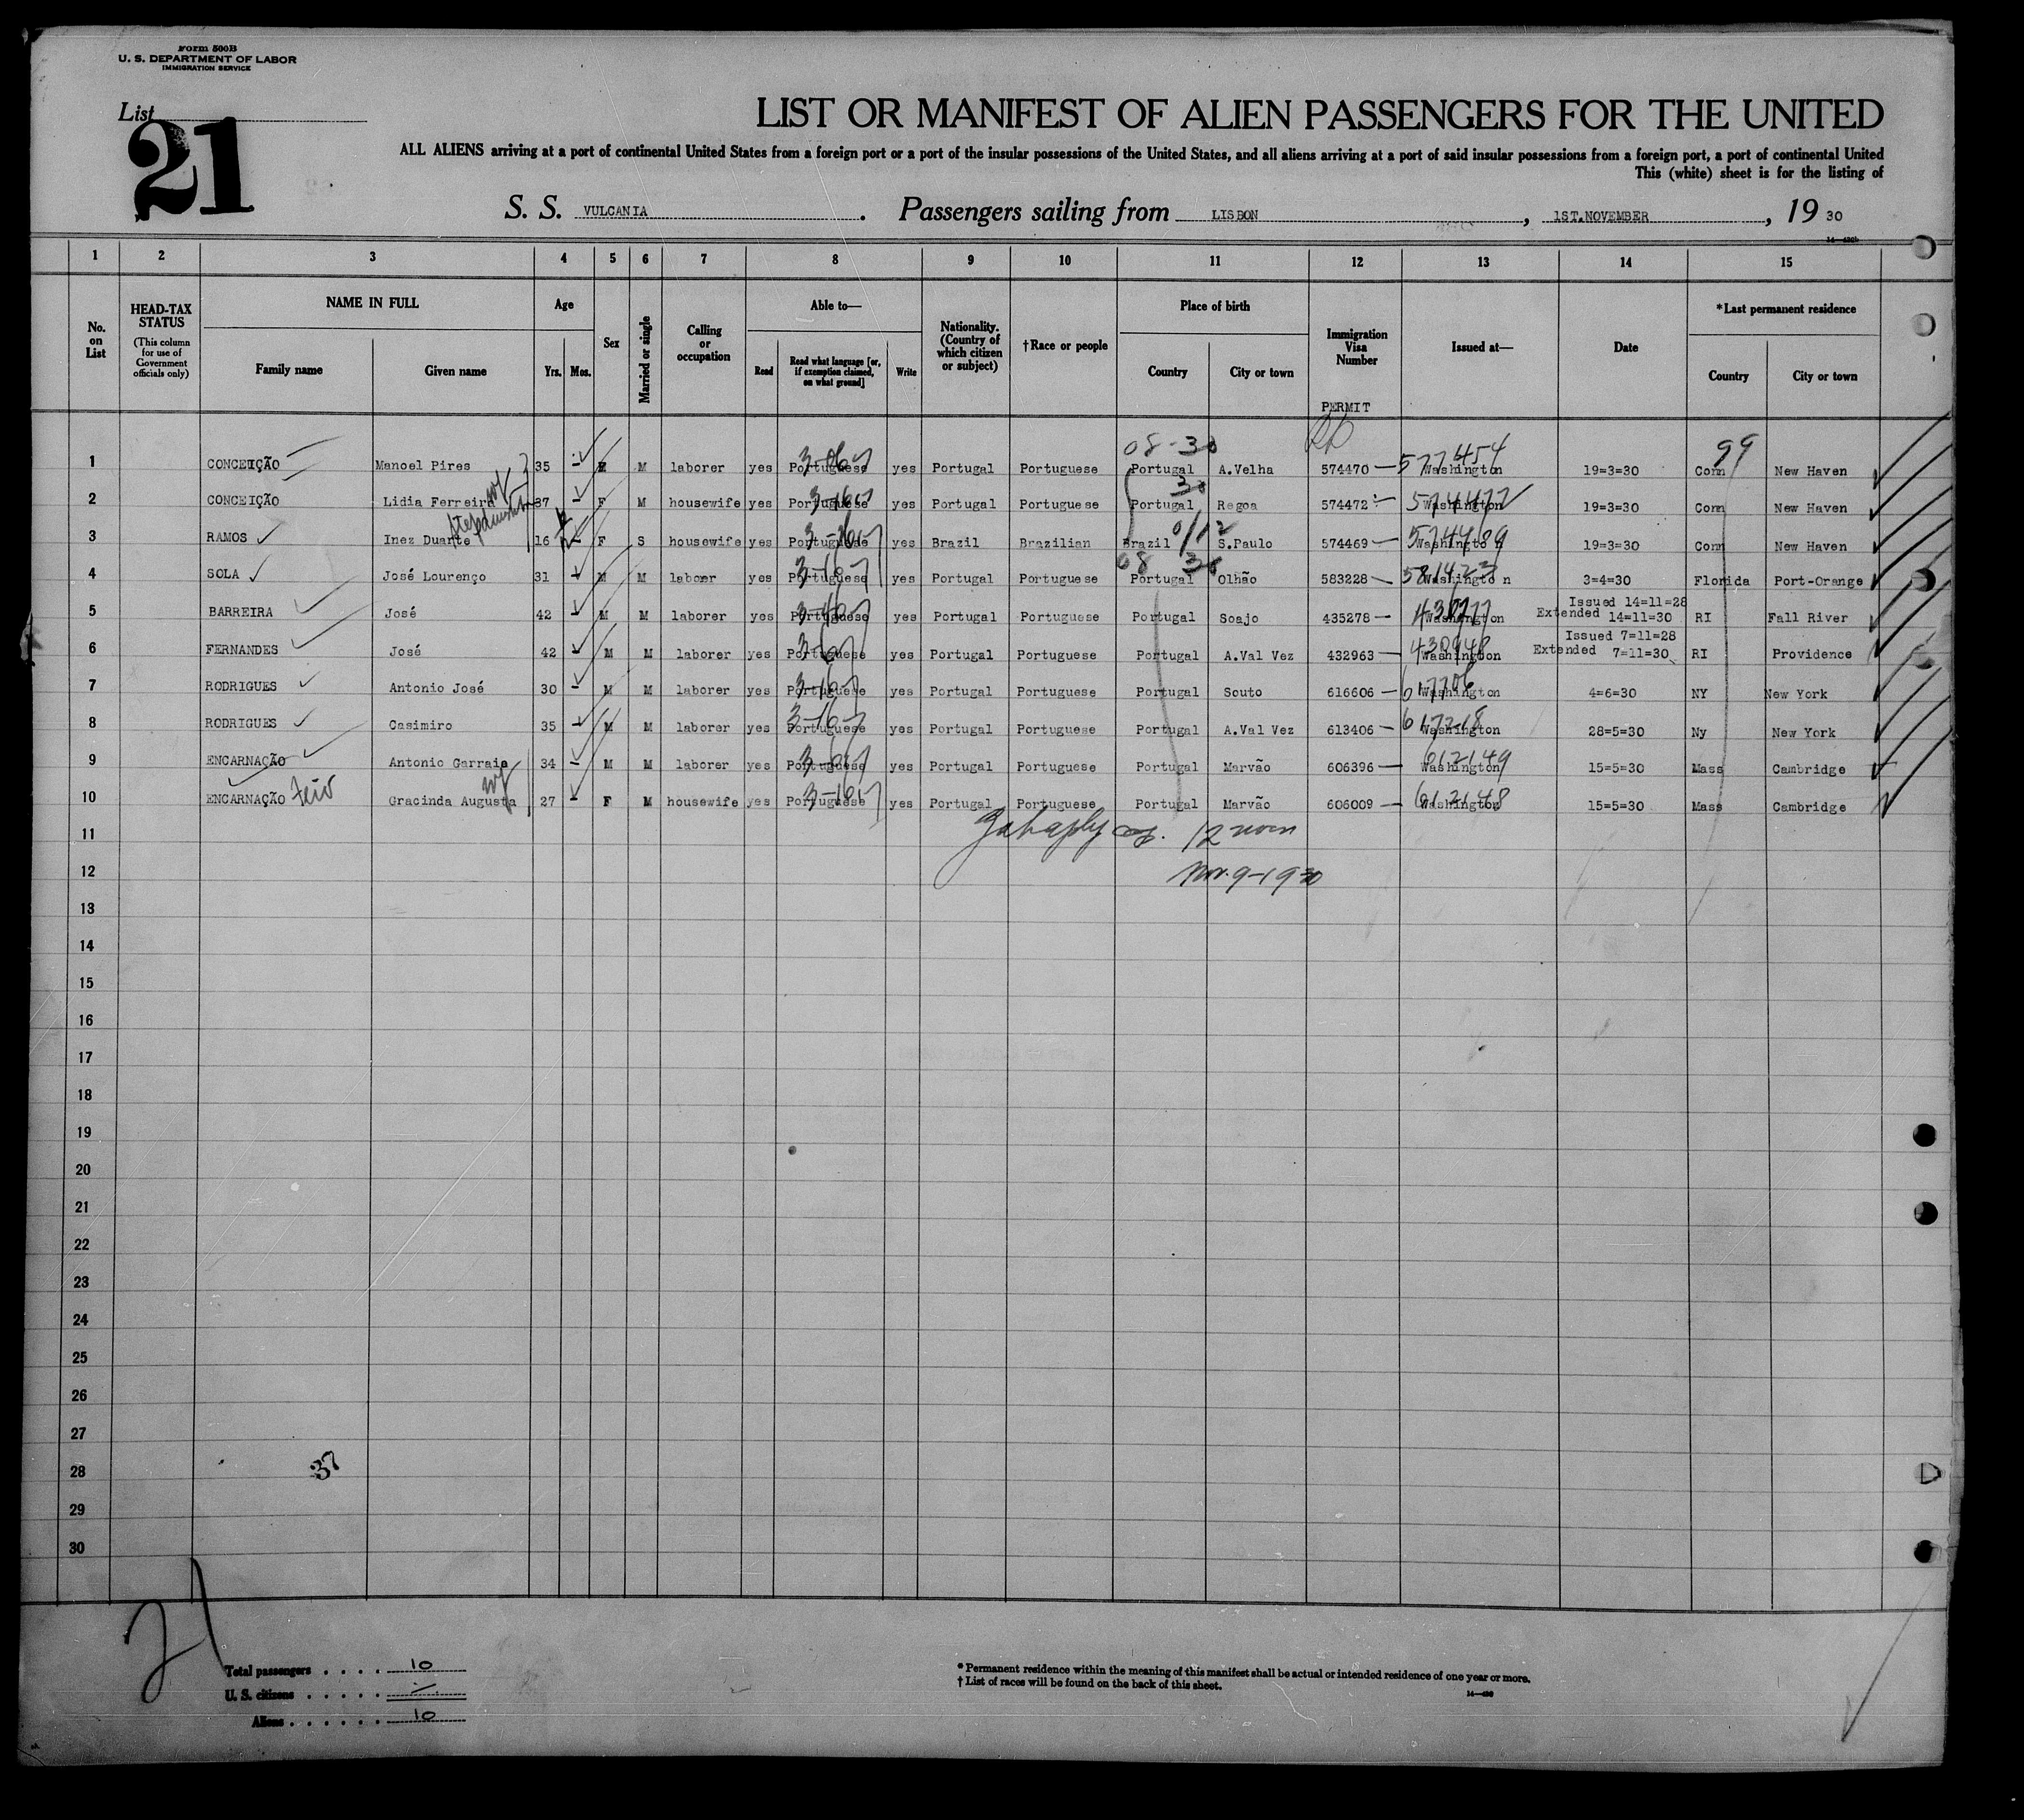 Form 500B
U. S. DEPARTMENT OF LABOR
IMMIGRATION SERVICE
List
21
LIST OR MANIFEST OF ALIEN PASSENGERS FOR THE UNITED
ALL ALIENS arriving at a port of continental United States from a foreign port or a port of the insular possessions of the United States, and all aliens arriving at a port of said insular possessions from a foreign port, a port of continental United
This (white) sheet is for the listing of
S. S. VULCANIA. Passengers sailing from LISBON, 1ST.NOVEMBER, 19 30
1 2 3 4 5 6 7 8 9 10 11 12 13 14 15
No. on List
HEAD-TAX STATUS
(This column for use of Government officials only)
NAME IN FULL
Family name Given name
Age
Yrs. Mos.
Sex
Married or single
Calling or occupation
Able to—
Read Read what language [or, if exemption claimed, on what ground] Write
Nationality. (Country of which citizen or subject)
†Race or people
Place of birth
Country City or town
Immigration Visa Number
PERMIT
Issued at—
Date
*Last permanent residence
Country City or town
08-30 99
1 CONCEIÇÃO Manoel Pires 35 - M M laborer yes Portuguese yes Portugal Portuguese Portugal A.Velha 574470 Washington 577454 19=3=30 Conn New Haven
2 CONCEIÇÃO Lidia Ferreira wf 37 F M housewife yes Portuguese yes Portugal Portuguese Portugal 30 Regoa 574472 Washington 574477 19=3=30 Conn New Haven
3 RAMOS Inez Duarte stepdaughter 16 - F S housewife yes Portuguese yes Brazil Brazilian Brazil S.Paulo 574469 Washington 19=3=30 Conn New Haven
08 30
4 SOLA José Lourenço 31 M M laborer yes Portuguese yes Portugal Portuguese Portugal Olhão 583228 Washington 581423 3=4=30 Florida Port-Orange
5 BARREIRA José 42 - M M laborer yes Portuguese yes Portugal Portuguese Portugal Soajo 435278 Washington Issued 14=11=28 Extended 14=11=30 RI Fall River
6 FERNANDES José 42 - M M laborer yes Portuguese yes Portugal Portuguese Portugal A.Val Vez 432963 Washington 430948 Issued 7=11=28 Extended 7=11=30 RI Providence
7 RODRIGUES Antonio José 30 - M M laborer yes Portuguese yes Portugal Portuguese Portugal Souto 616606 Washington 617706 4=6=30 NY New York
8 RODRIGUES Casimiro 35 M M laborer yes Portuguese yes Portugal Portuguese Portugal A.Val Vez 613406 Washington 617218 28=5=30 Ny New York
9 ENCARNAÇÃO Antonio Garraio 34 - M M laborer yes Portuguese yes Portugal Portuguese Portugal Marvão 606396 Washington 612149 15=5=30 Mass Cambridge
10 ENCARNAÇÃO Gracinda Augusta wf 27 - F M housewife yes Portuguese yes Portugal Portuguese Portugal Marvão 606009 Washington 612148 15=5=30 Mass Cambridge
11 12 noon
12 Nov. 9-1930
13
14
15
16
17
18
19
20
21
22
23
24
25
26
27
28 37
29
30
21
Total passengers . . . . 10
U. S. citizens . . . . . —
Aliens . . . . . . 10
* Permanent residence within the meaning of this manifest shall be actual or intended residence of one year or more.
† List of races will be found on the back of this sheet.